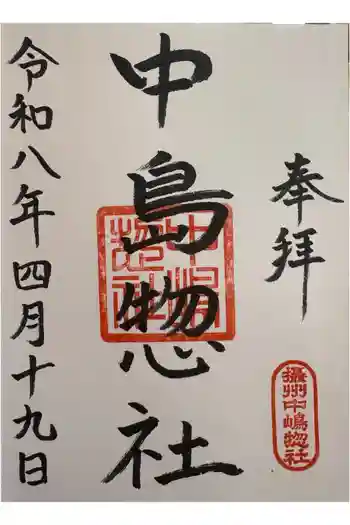 奉拝
攝州中嶋惣社
中島惣社
中嶋惣社
令和八年四月十九日